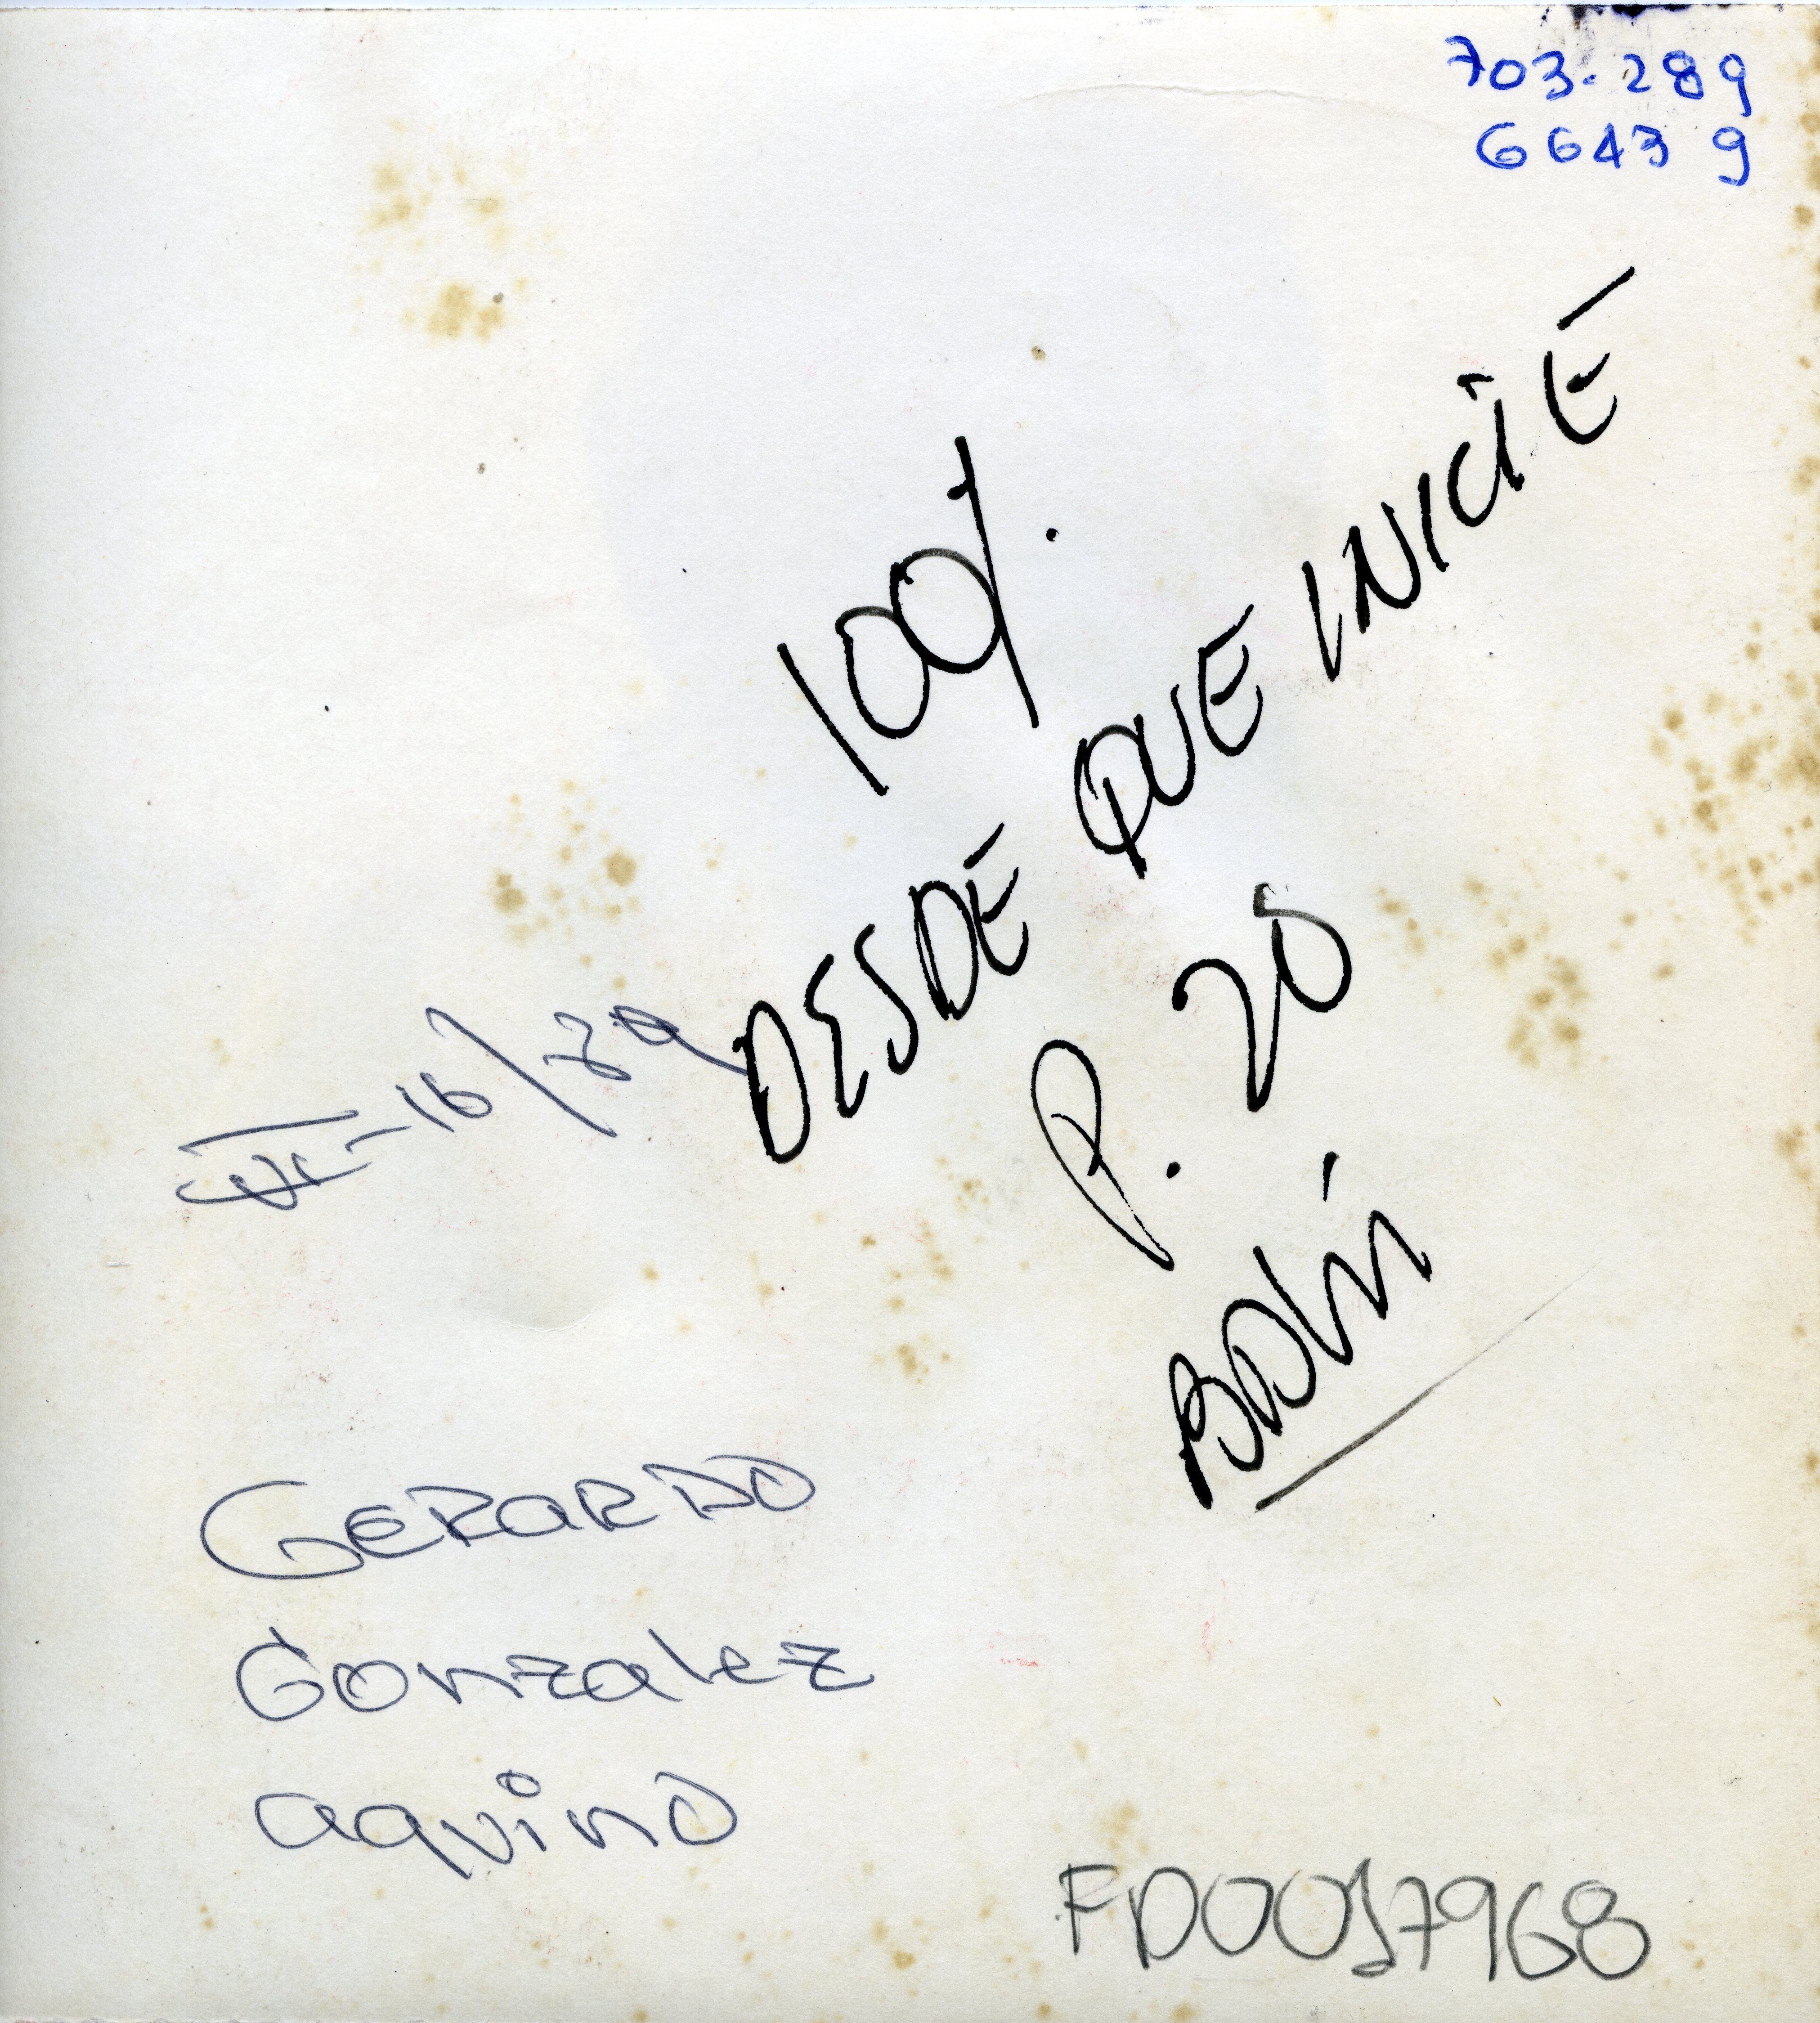 703-289
6643 9
100%.
DESDE QUE INICIE
P. 20
VI-16/79
GERARDO
Gonzalez
aquino
FD0057968